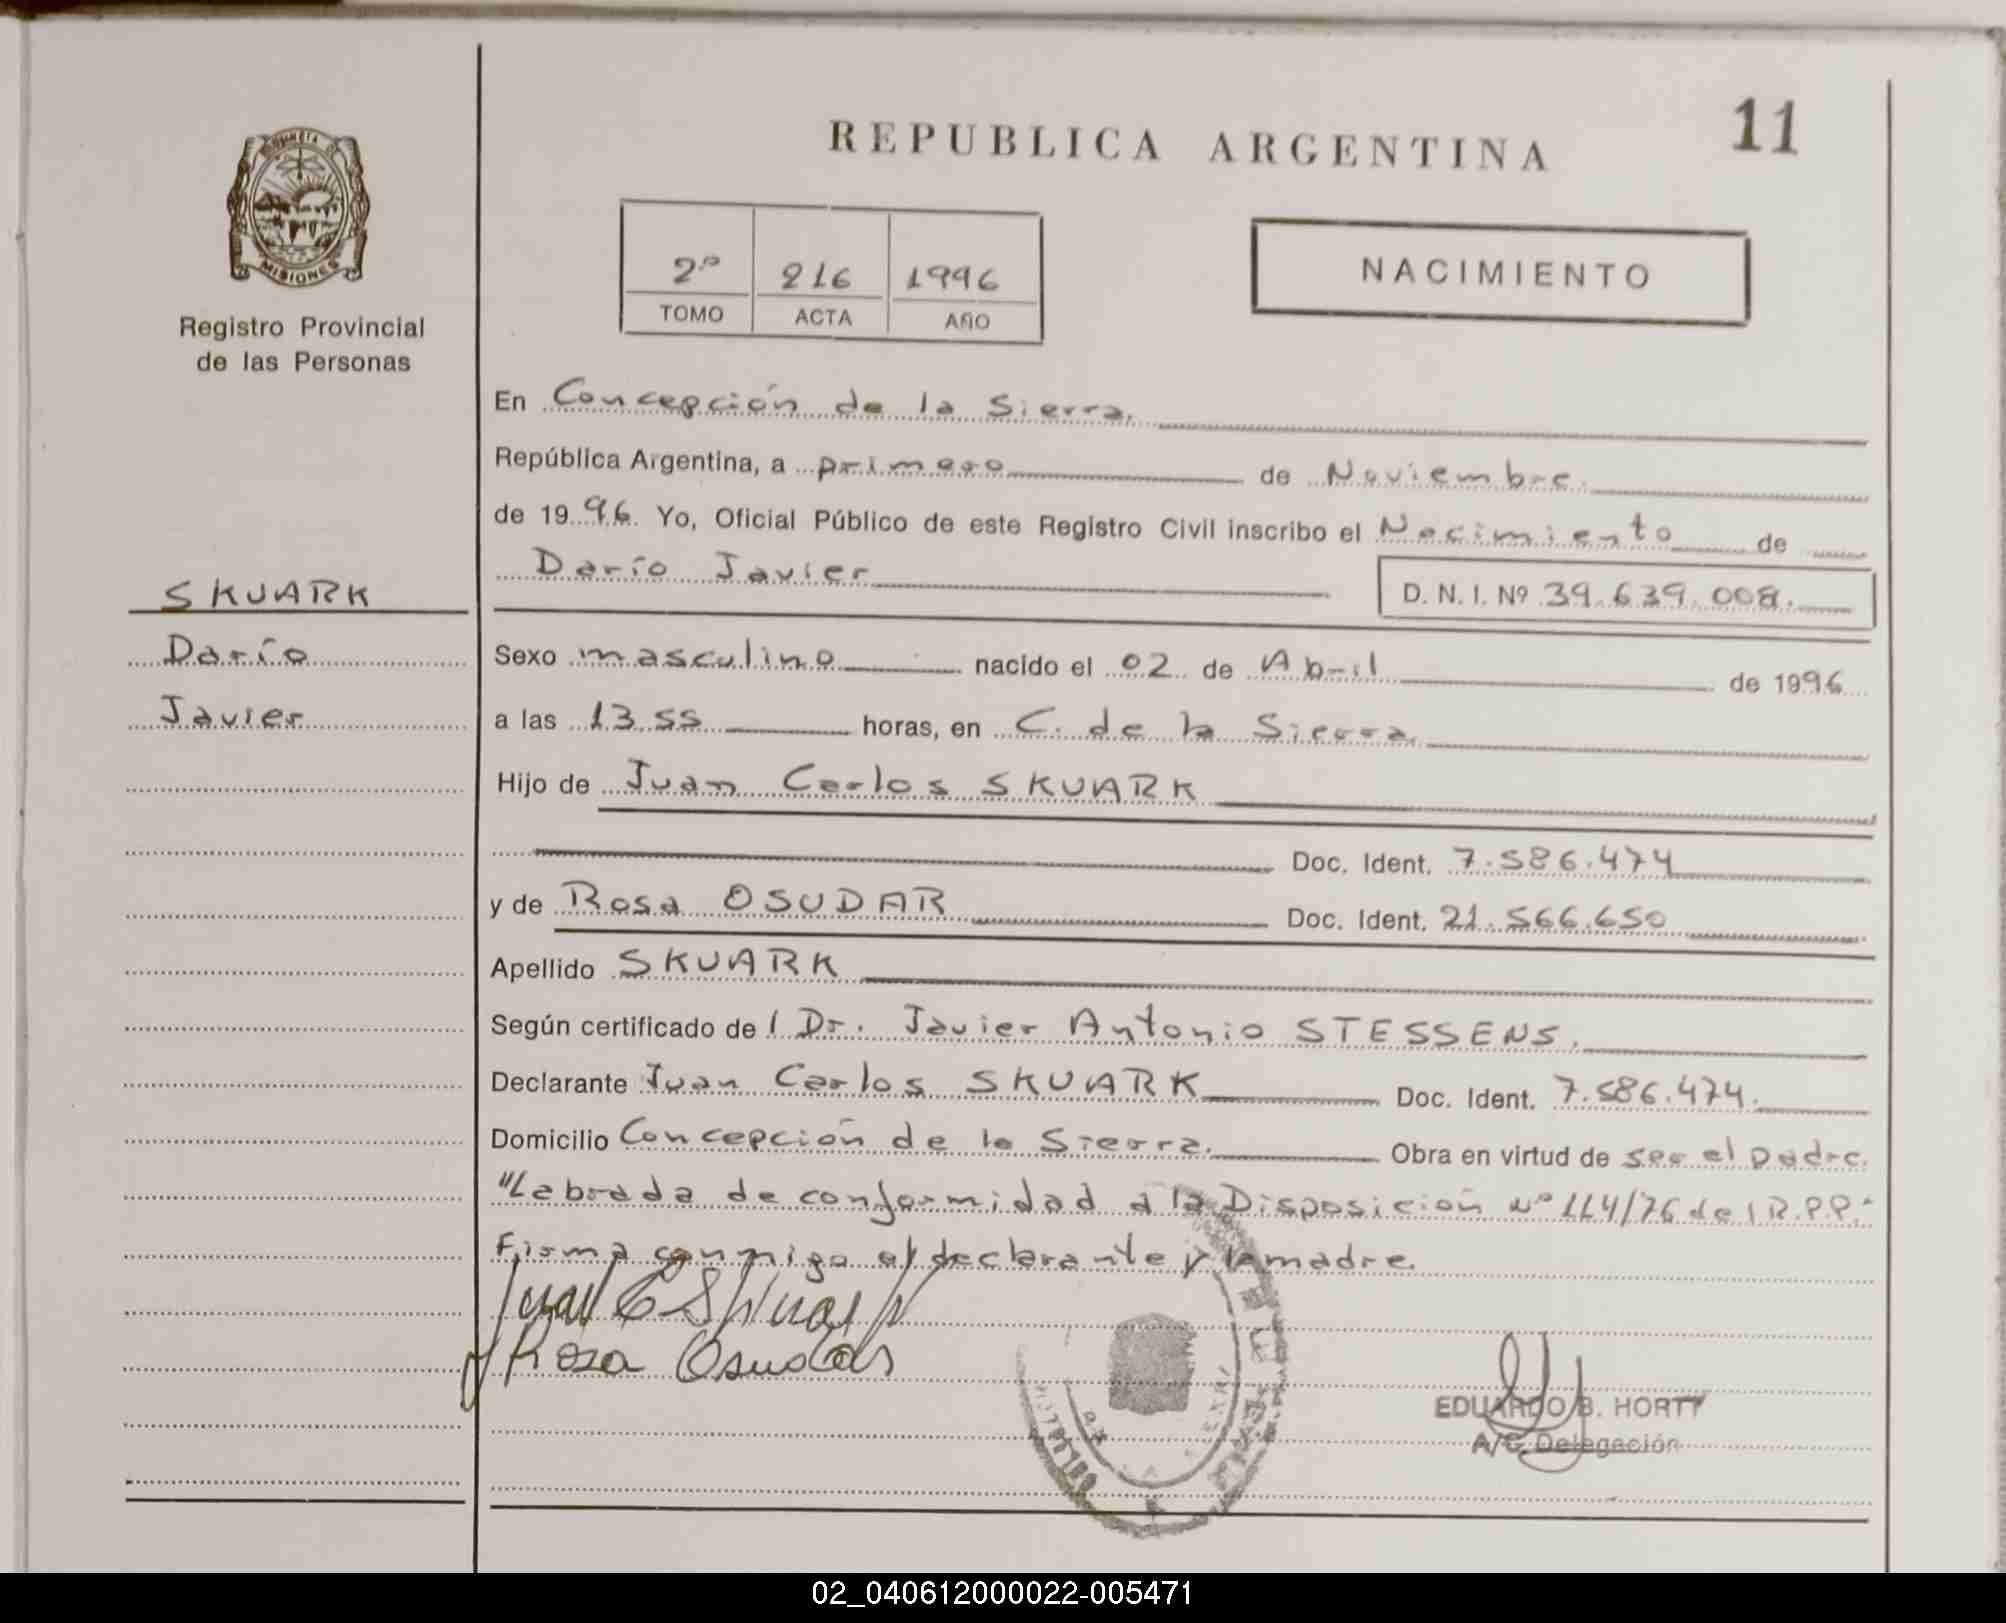 REPUBLICA ARGENTINA
11
PROVINCIA DE
MISIONES
Registro Provincial
de las Personas
2º 216 1996
TOMO ACTA AÑO
NACIMIENTO
En Concepción de la Sierra.
República Argentina, a primero de Noviembre.
de 1996. Yo, Oficial Público de este Registro Civil inscribo el Nacimiento de
Darío Javier D. N. I. Nº 39.639.008.
SKUARK
Darío
Javier
Sexo masculino nacido el 02 de Abril de 1996
a las 13.55 horas, en C. de la Sierra.
Hijo de Juan Carlos SKUARK
Doc. Ident. 7.586.474
y de Rosa OSUDAR Doc. Ident. 21.566.650
Apellido SKUARK
Según certificado de l Dr. Javier Antonio STESSENS.
Declarante Juan Carlos SKUARK Doc. Ident. 7.586.474.
Domicilio Concepción de la Sierra. Obra en virtud de ser el padre.
"Labrada de conformidad a la Disposición Nº 114/76 del R.P.P."
Firma conmigo el declarante y la madre.
Juan C Skuark
Rosa Osudar
EDUARDO B. HORTT
A/C Delegación
02_040612000022-005471